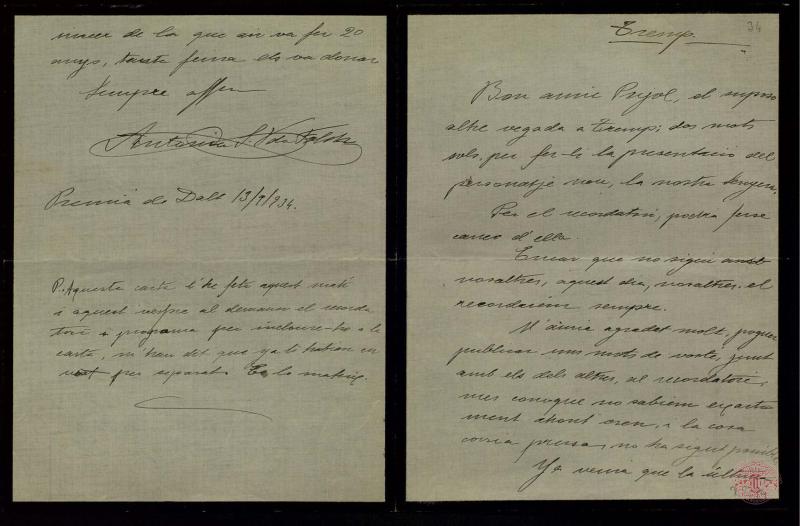 macer de la que ain va fer 20
anys, tanta feina els va donar
Sempre affm
Antonia S. Vda
Premiá de Dalt 13/9/934.
P.. Aquesta carta l'he feta aquest matí
i aquest vespre al demanar el recorda
tori i programa per incloure-ho a la
carta, m'han dit que ya li habian en
viat per separat. Es lo mateix.
34
Tremp.
Bon amic Pujol, el suposo
altre vegada a Tremp; dos mots
sols, per fer-li la presentació del
personatje nou, la nostra Senyera.
Per el recordatori, podrà ferse
carrec d'ella.
Encar que no sigui amb
vosaltres, aquest dia, nosaltres el
recordarém sempre.
M'auria agradat molt, poguer
publicar uns mots de vosté, junt
amb els dels altres, al recordatori,
mes conogue no sabiem exacta
ment ahont eren, i la cosa
corria pressa, no ha sigut posible
Ya veurá que la última